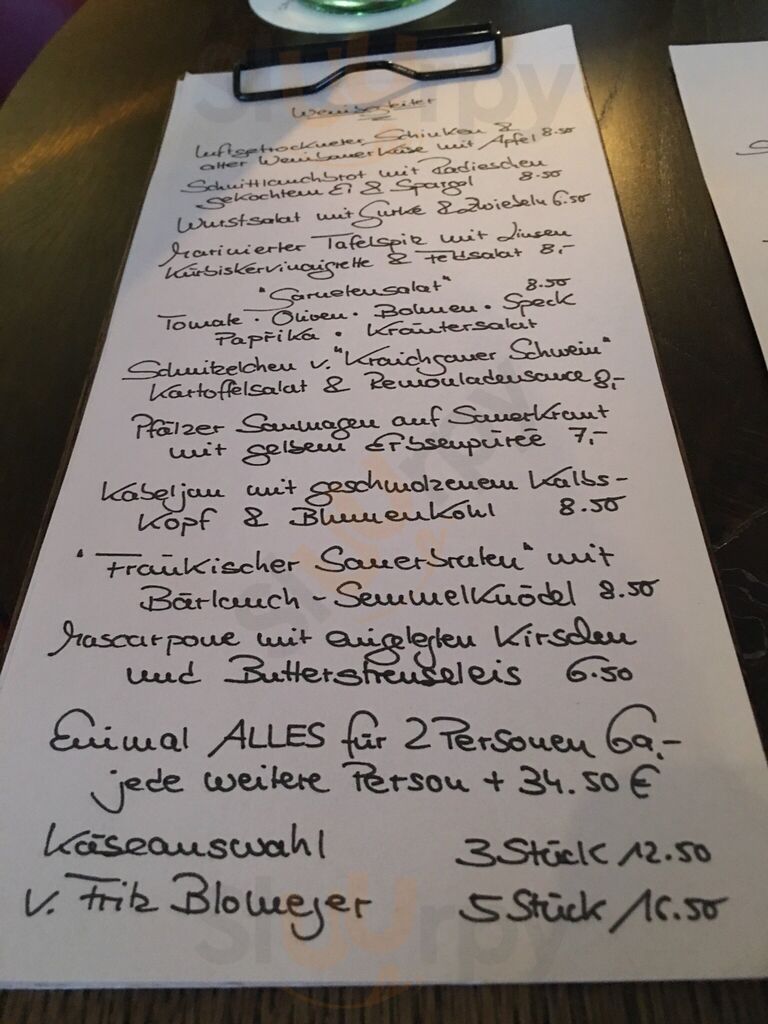 Weinbegleiter
Luftgetrockneter Schinken &
alter Weinbauerkäse mit Apfel 8.50
Schnittlauchbrot mit Radieschen
gekochtem Ei & Spargel 8.50
Wurstsalat mit Gurke & Zwiebeln 6.50
Marinierter Tafelspitz mit Linsen
Kürbiskernvinaigrette & Feldsalat 8,-
"Garnelensalat" 8.50
Tomate · Oliven · Bohnen · Speck
Paprika · Kräutersalat
Schnitzelchen v. "Kraichgauer Schwein"
Kartoffelsalat & Remouladensauce 8,-
Pfälzer Saumagen auf Sauerkraut
mit gelbem Erbsenpüree 7,-
Kabeljau mit geschmolzenem Kalbs-
kopf & Blumenkohl 8.50
"Fränkischer Sauerbraten" mit
Bärlauch-Semmelknödel 8.50
Mascarpone mit eingelegten Kirschen
und Butterstreuseleis 6.50
Einmal ALLES für 2 Personen 69,-
jede weitere Person + 34.50 €
Käseauswahl 3 Stück 12.50
v. Fritz Blomeyer 5 Stück 16.50
sluurpy
sluurpy
sluurpy